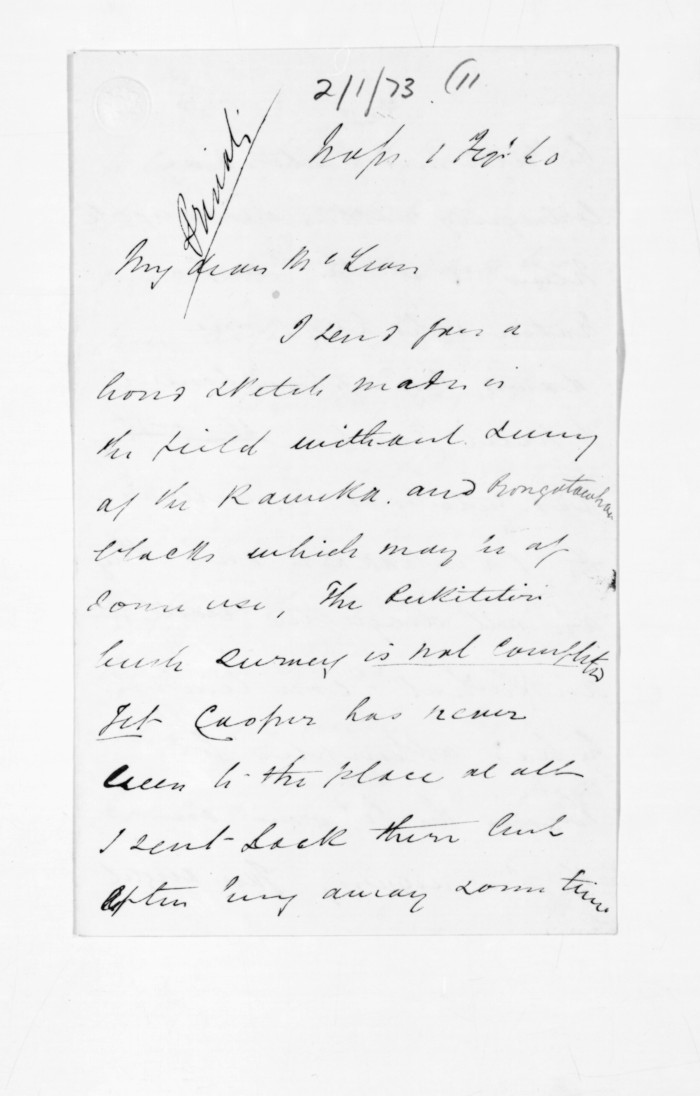 2/1/73 (11
Private
My dear McLean
I send you a
hand sketch made in
the field without survey
of the Raweka. and Rongotawhao
blocks which may be of
some use, The Pukititiri
bush survey is not completed
Yet Cooper has never
been to the place at all
I sent back there but
after being away some time